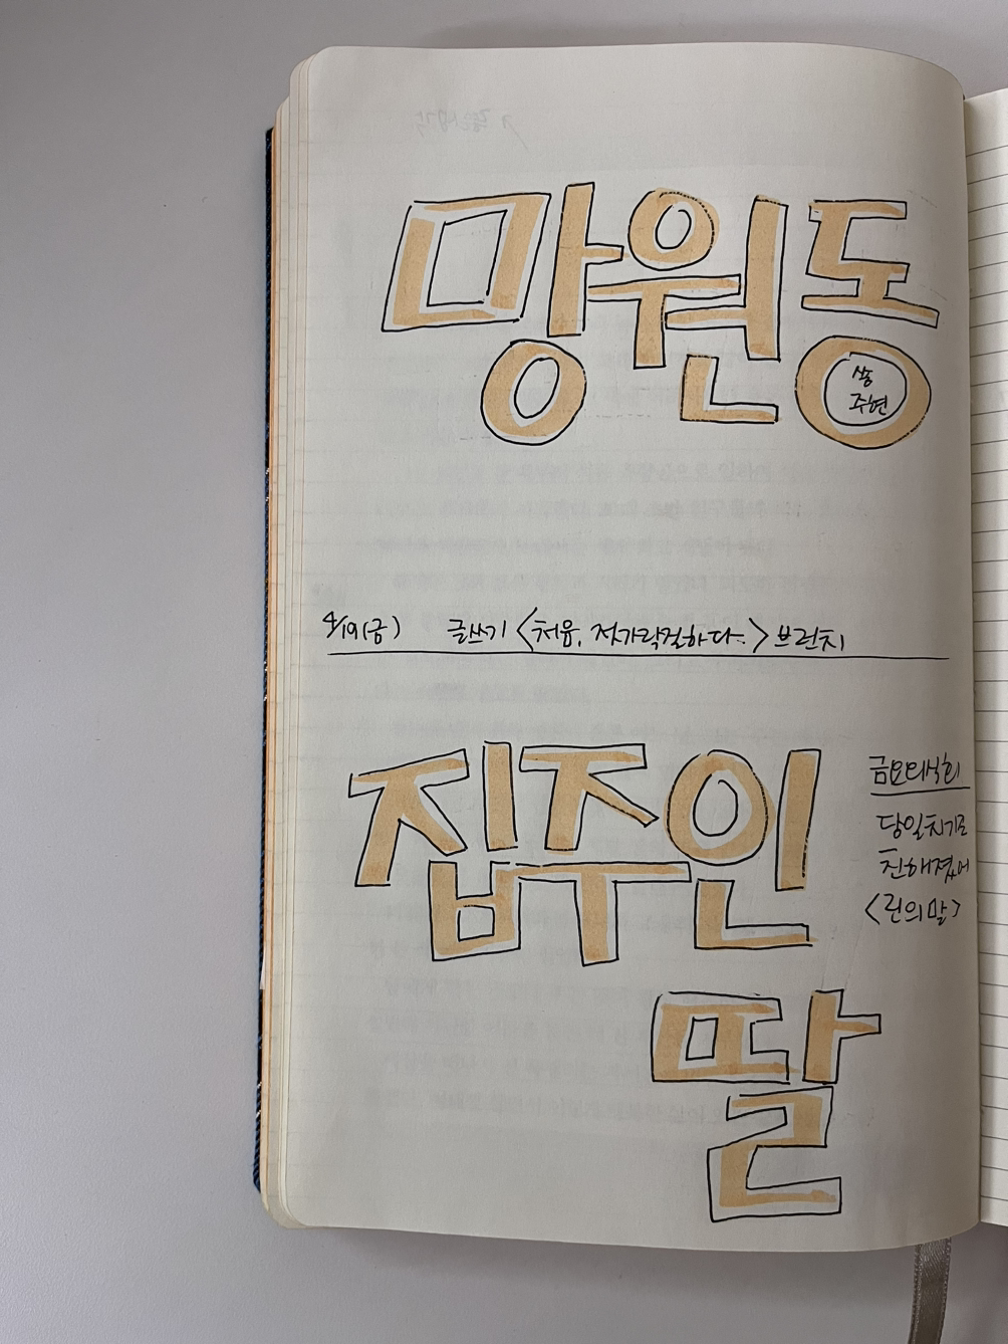 망원동
쌍
주현
4/19(금) 글쓰기 <처음, 저가락질하다.> 브런치
집주인
금요미식회
당일치기로
친해졌어
<린의 말>
딸